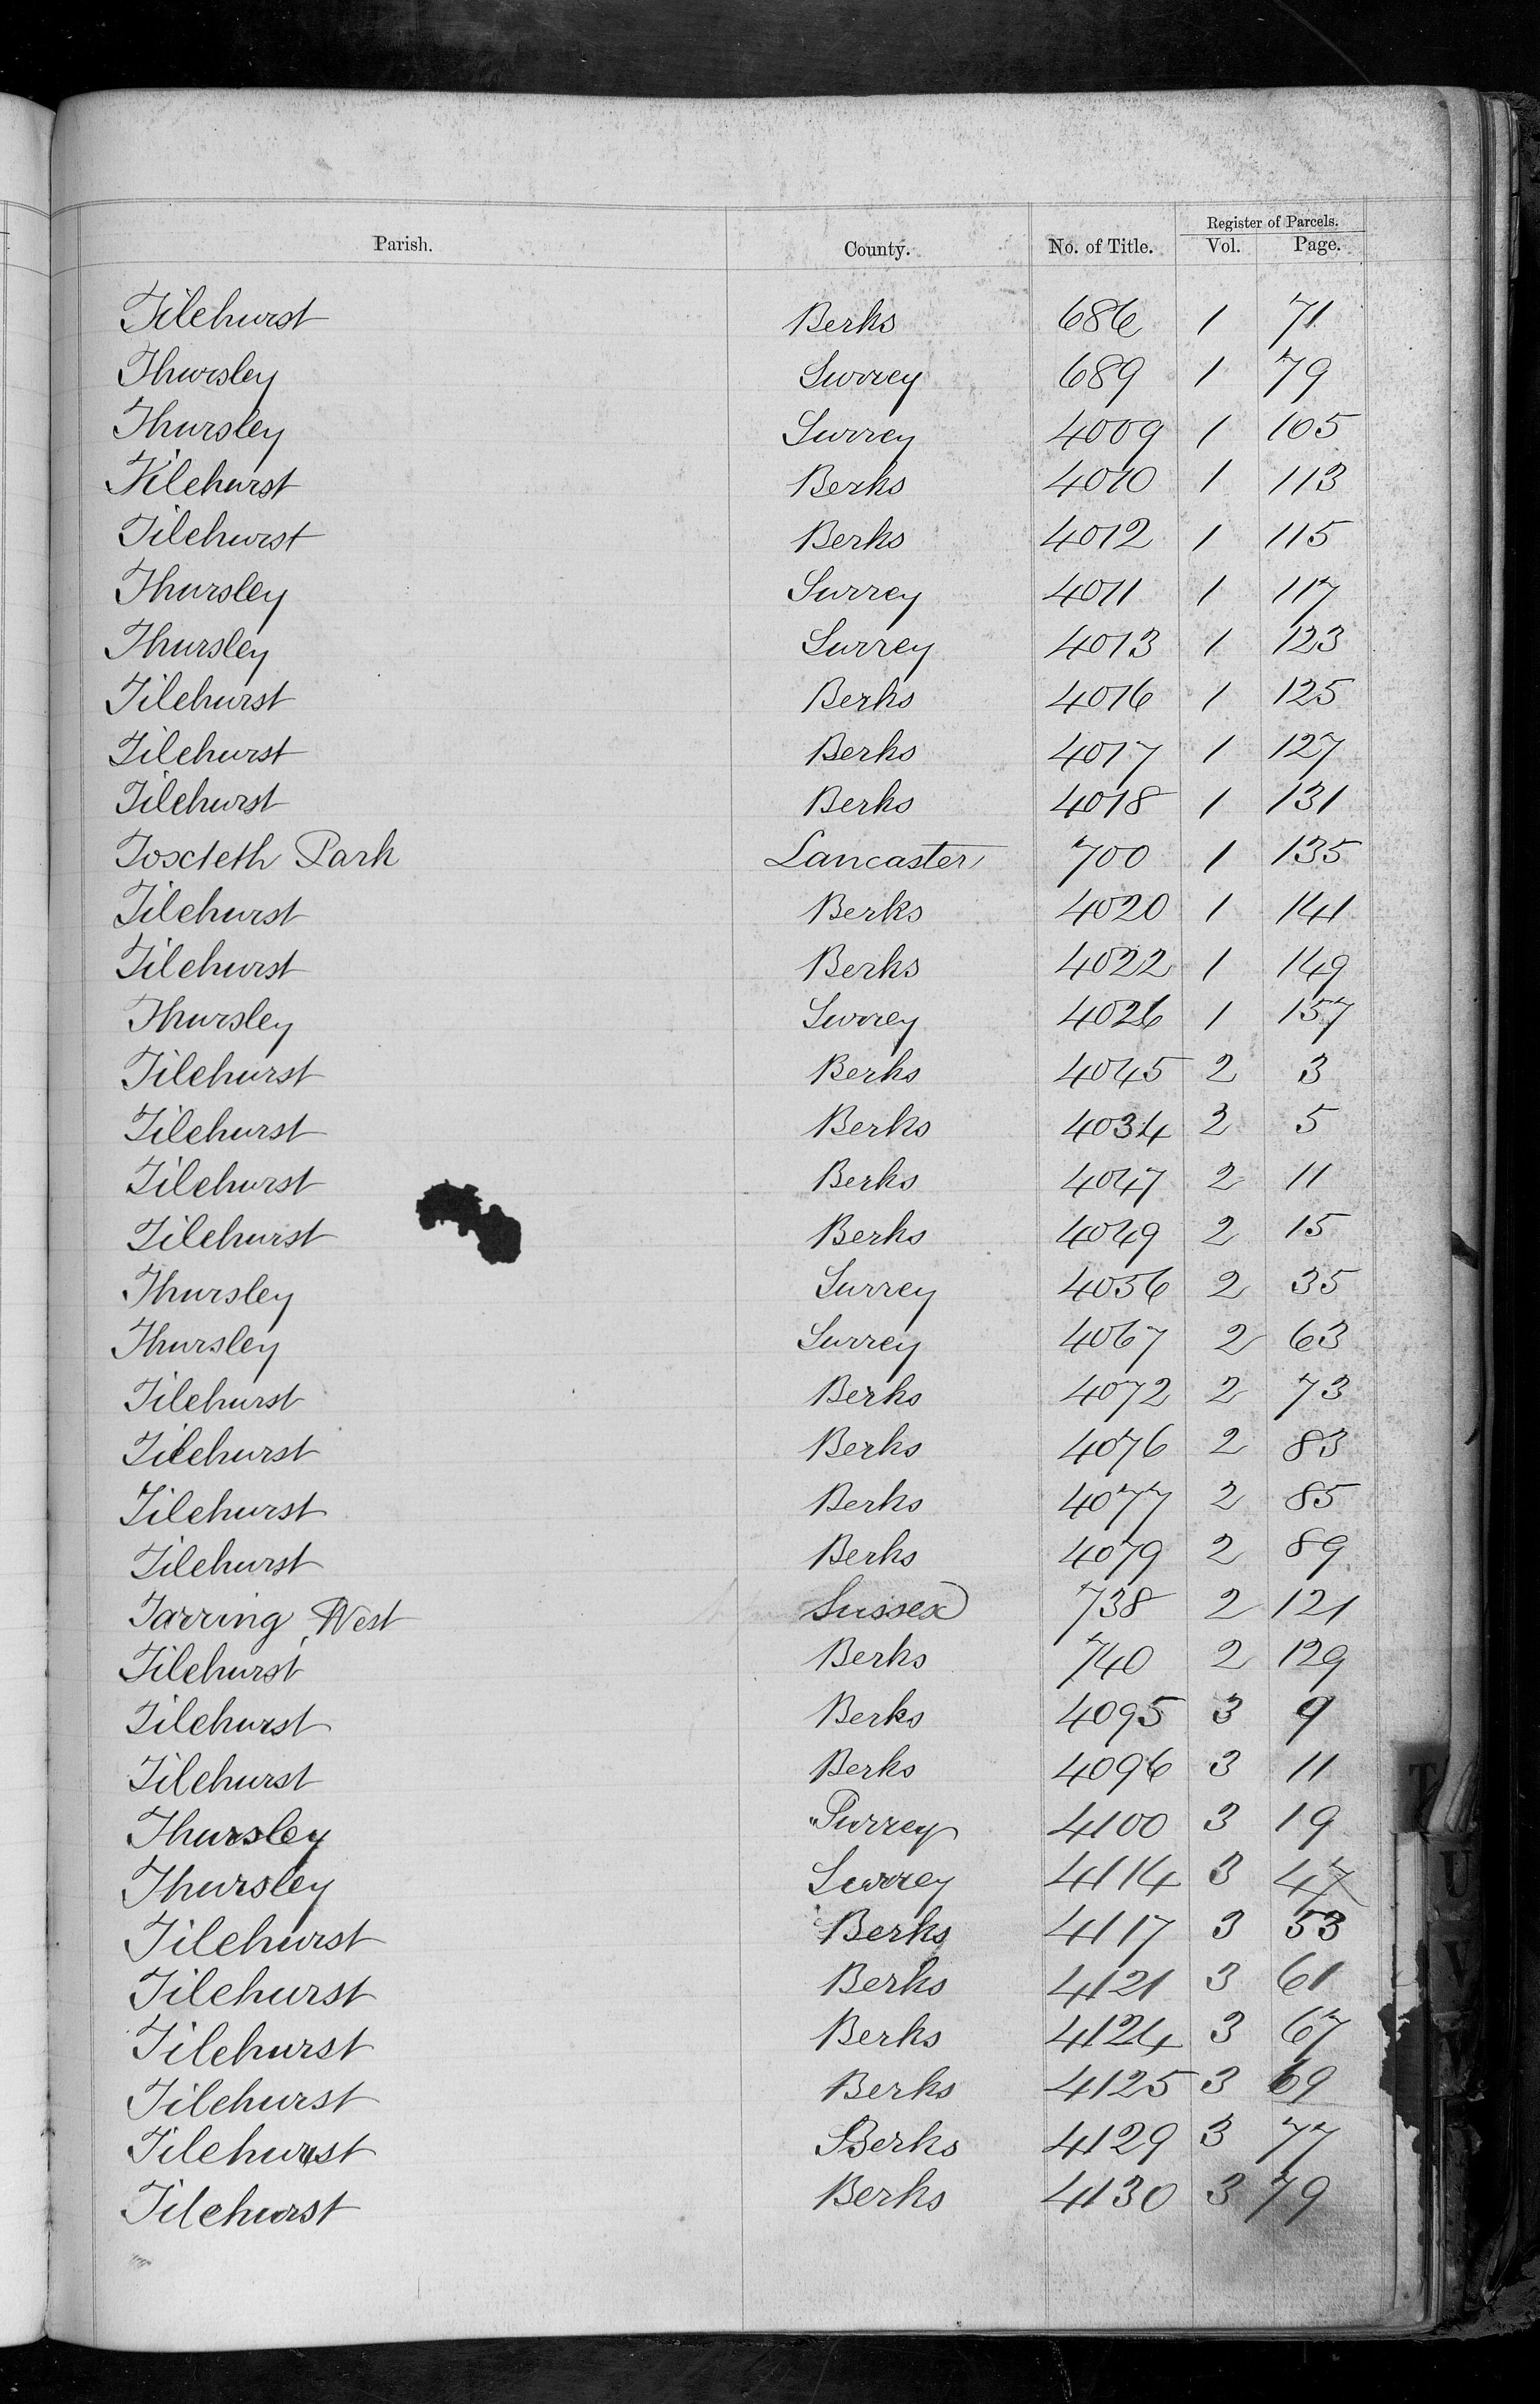 Register of Parcels.
Parish. County. No. of Title. Vol. Page.
Tilehurst Berks 686 1 71
Thursley Surrey 689 1 79
Thursley Surrey 4009 1 105
Tilehurst Berks 4010 1 113
Tilehurst Berks 4012 1 115
Thursley Surrey 4011 1 117
Thursley Surrey 4013 1 123
Tilehurst Berks 4016 1 125
Tilehurst Berks 4017 1 127
Tilehurst Berks 4018 1 131
Toxteth Park Lancaster 700 1 135
Tilehurst Berks 4020 1 141
Tilehurst Berks 4022 1 149
Thursley Surrey 4026 1 157
Tilehurst Berks 4045 2 3
Tilehurst Berks 4034 2 5
Tilehurst Berks 4047 2 11
Tilehurst Berks 4049 2 15
Thursley Surrey 4056 2 35
Thursley Surrey 4067 2 63
Tilehurst Berks 4072 2 73
Tilehurst Berks 4076 2 83
Tilehurst Berks 4077 2 85
Tilehurst Berks 4079 2 89
Tarring, West Sussex 738 2 121
Tilehurst Berks 740 2 129
Tilehurst Berks 4095 3 9
Tilehurst Berks 4096 3 11
Thursley Surrey 4100 3 19
Thursley Surrey 4114 3 47
Tilehurst Berks 4117 3 53
Tilehurst Berks 4121 3 61
Tilehurst Berks 4124 3 67
Tilehurst Berks 4125 3 69
Tilehurst Berks 4129 3 77
Tilehurst Berks 4130 3 79
T
U
V
W